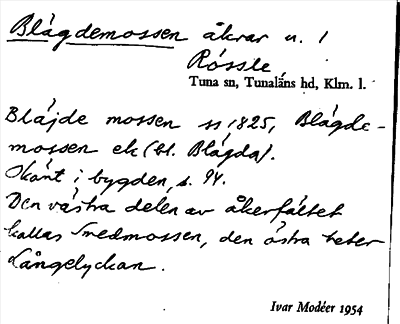 Blågdemossen åkrar u. 1
Rössle
Tuna sn, Tunaläns hd, Klm. l.
Blåjde mossen ss 1825, Blågde-
mossen ek (bl. Blågda).
Skånt i bygden, s. 94.
Den västra delen av åkerfältet
kallas Smedmossen, den östra heter
Långelyckan.
Ivar Modéer 1954